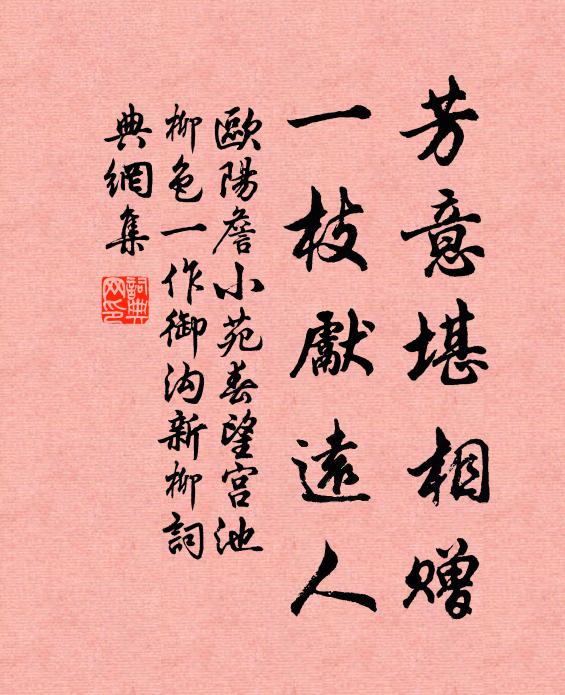 芳意堪相赠
一枝獻遠人
歐陽詹小苑春望宮池
柳色一作御沟新柳詞
典網集
詞典網印